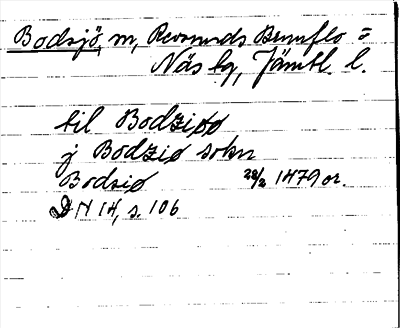 Bodsjö, m, Revsunds Brunflo o
Näs tg, Jämtl. l.
til Bodziøø
j Bodziø sokn
Bodsiø 28/2 1479 or.
DN 14, s. 106